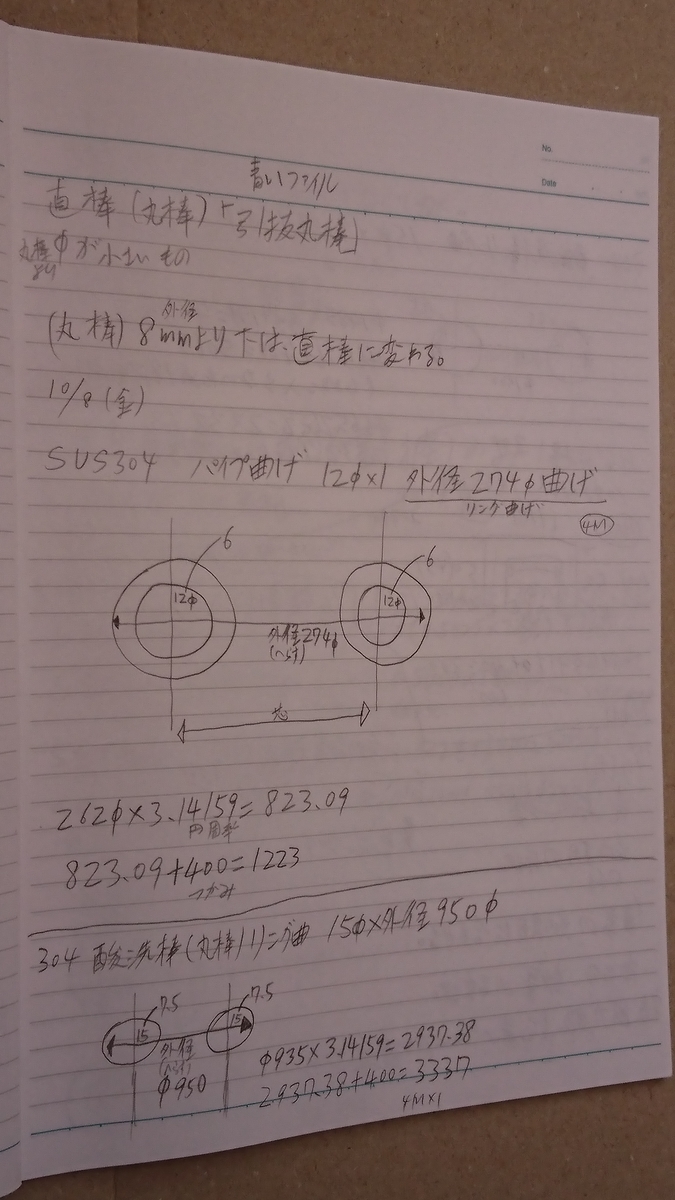 No.
Date
青いファイル
直棒(丸棒)+引抜丸棒
丸棒より φが小さいもの
外径
(丸棒) 8mmより下は、直棒に変わる。
10/8(金)
SUS304 パイプ曲げ 12φ×1 外径274φ曲げ
リング曲げ
4M
6
6
12φ
12φ
外径274φ
芯
262φ×3.14159=823.09
円周率
823.09+400=1223
つかみ
304 酸洗棒(丸棒)リング曲 15φ×外径950φ
7.5
7.5
15
15
外径
φ950
φ935×3.14159=2937.38
2937.38+400=3337
4M×1